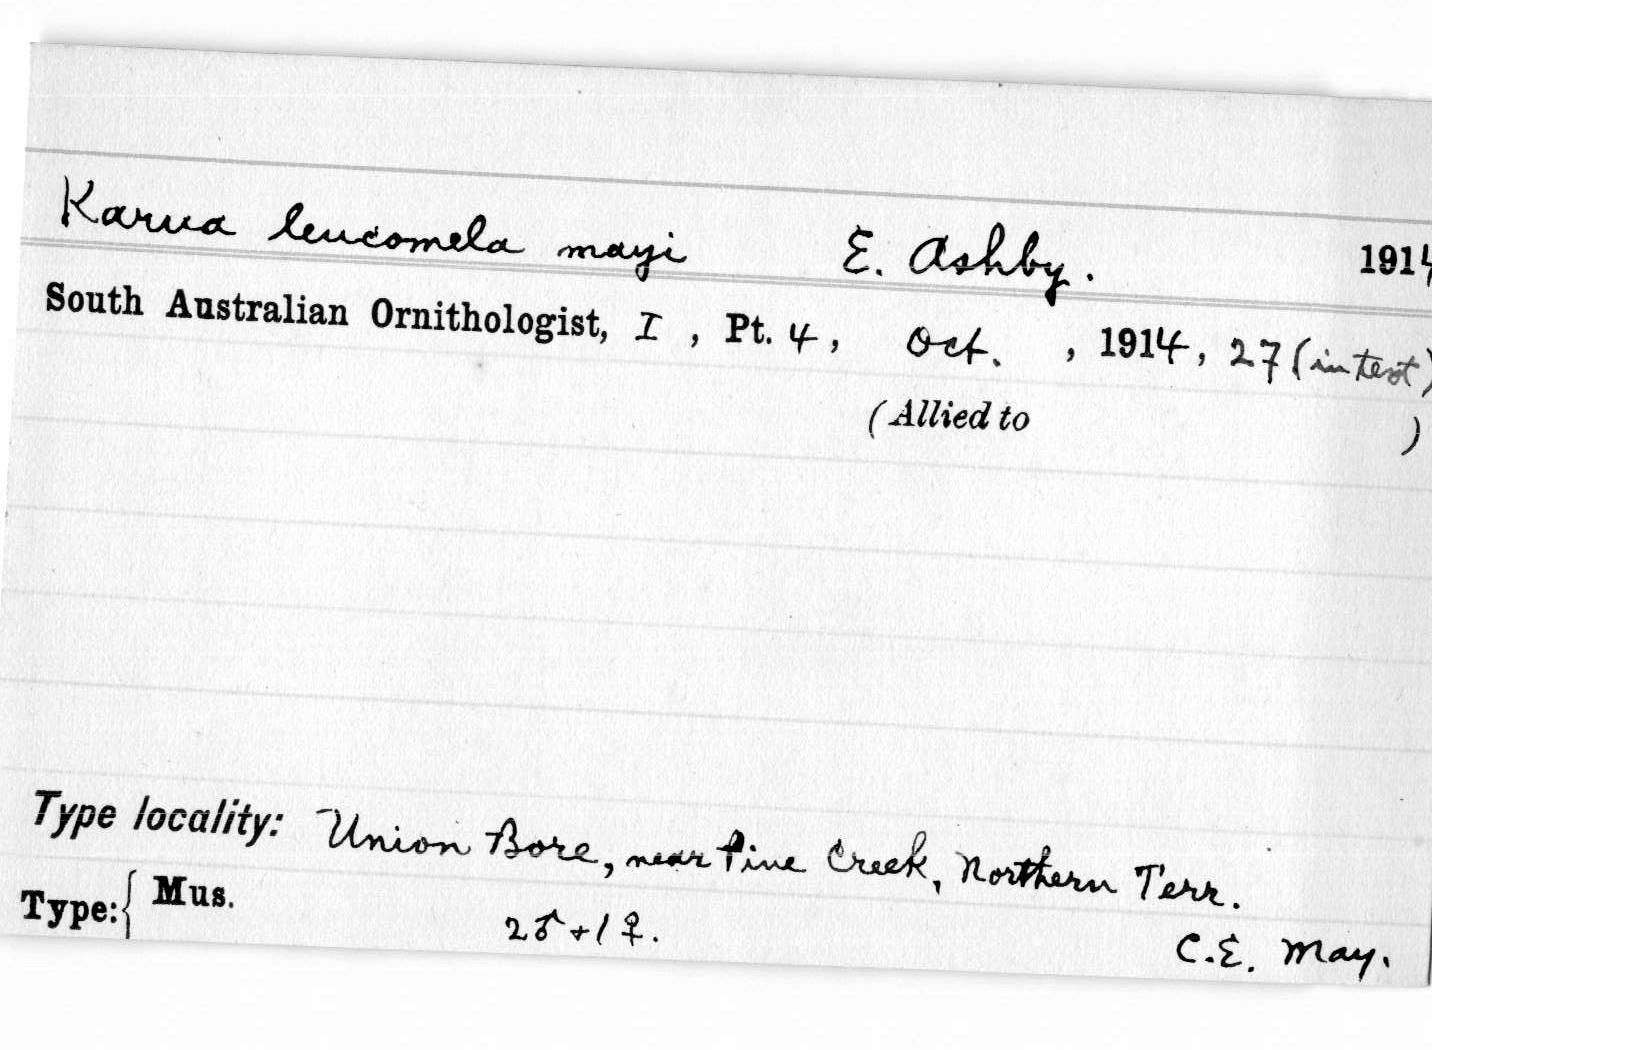 Karua leucomela mayi E. Ashby. 1914
South Australian Ornithologist, I, Pt. 4, Oct., 1914, 27 (in text)
(Allied to )
Type locality: Union Bore, near Pine Creek, Northern Terr.
Type: { Mus. 2♂+1♀. C.E. May.